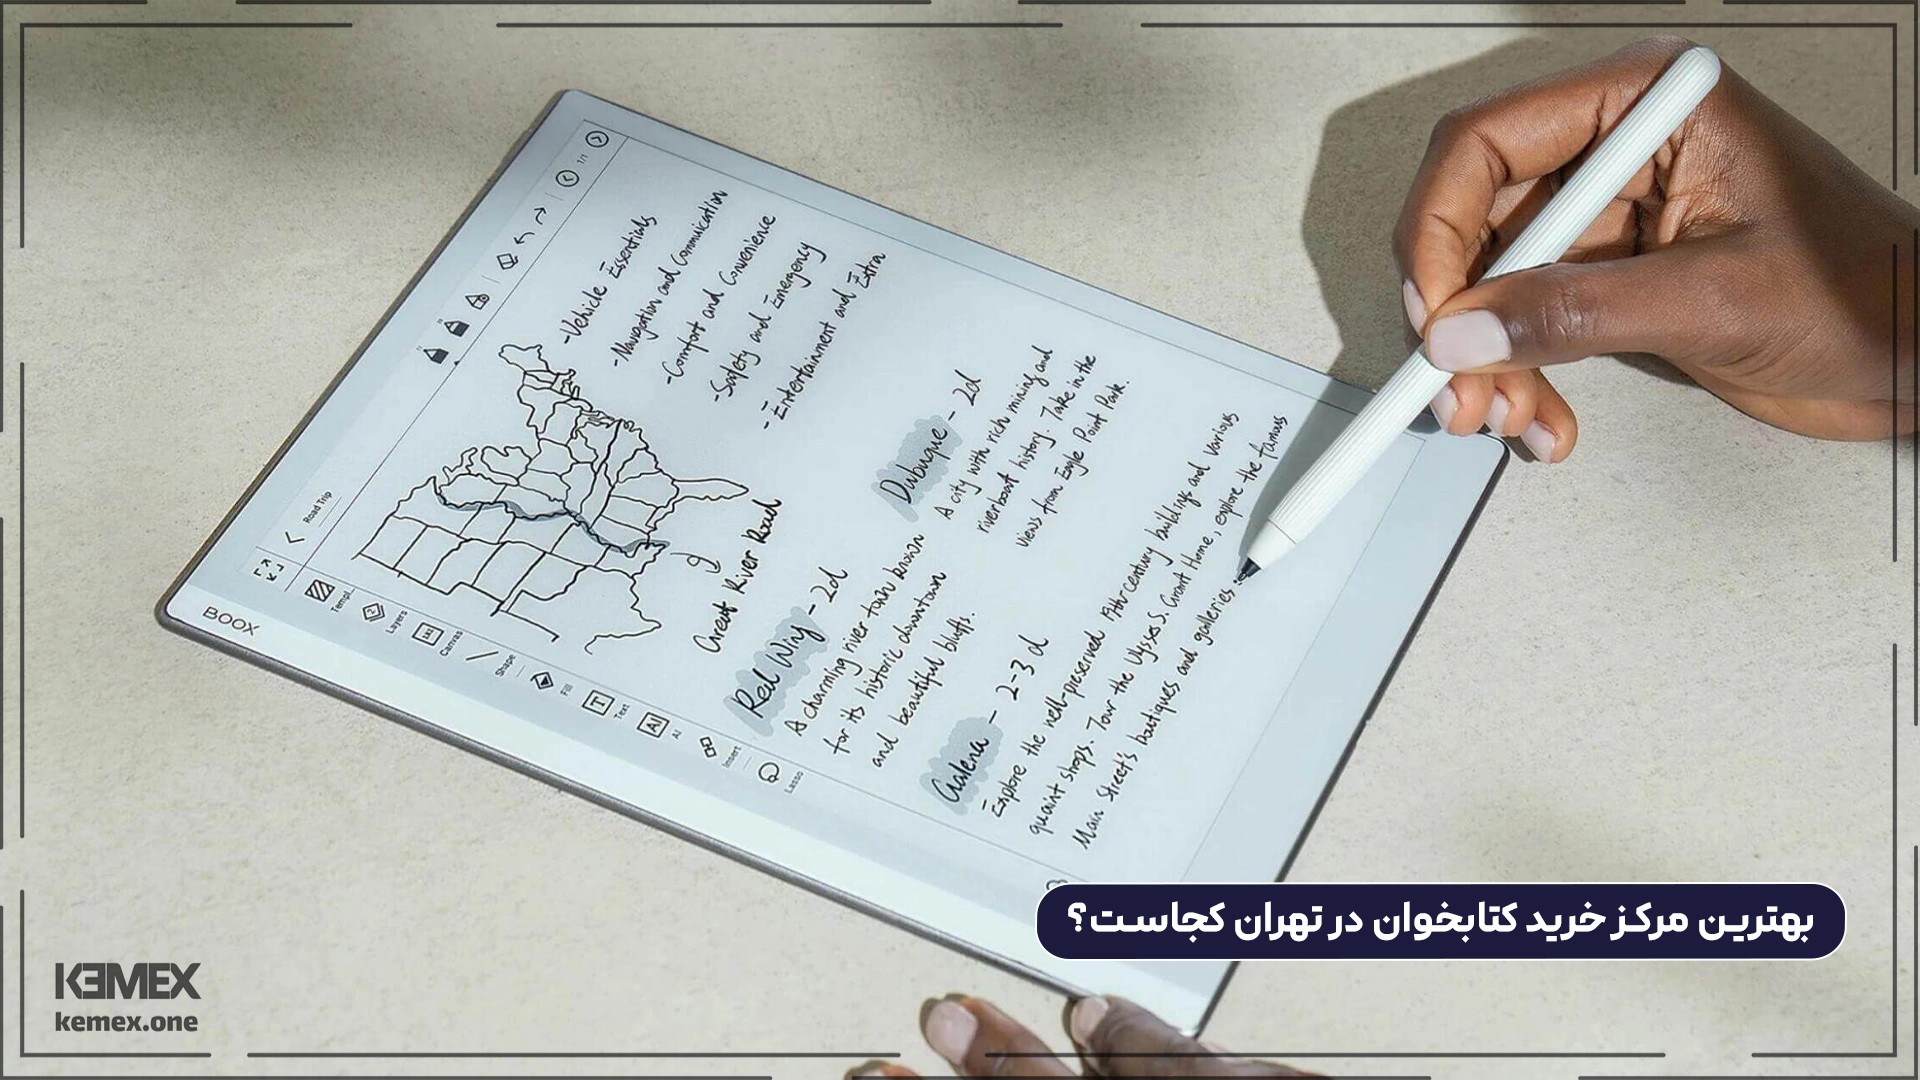 BOOX
Road Trip
1/1
Templ..
Layers
Canvas
Shape
Fill
Text
AI
Insert
Lasso
- Vehicle Essentials
- Navigation and Communication
- Comfort and Convenience
- Safety and Emergency
- Entertainment and Extra
Great River Road
Red Wing - 2d
A charming river town known
for its historic downtown
and beautiful bluffs.
Dubuque - 2d
A city with rich mining and
riverboat history. Take in the
views from Eagle Point Park.
Galena - 2-3 d
Explore the well-preserved 19th-century buildings and various
quaint shops. Tour the Ulysses S. Grant Home, explore the famous
Main Street's boutiques and galleries.
بهترین مرکز خرید کتابخوان در تهران کجاست؟
KEMEX
kemex.one